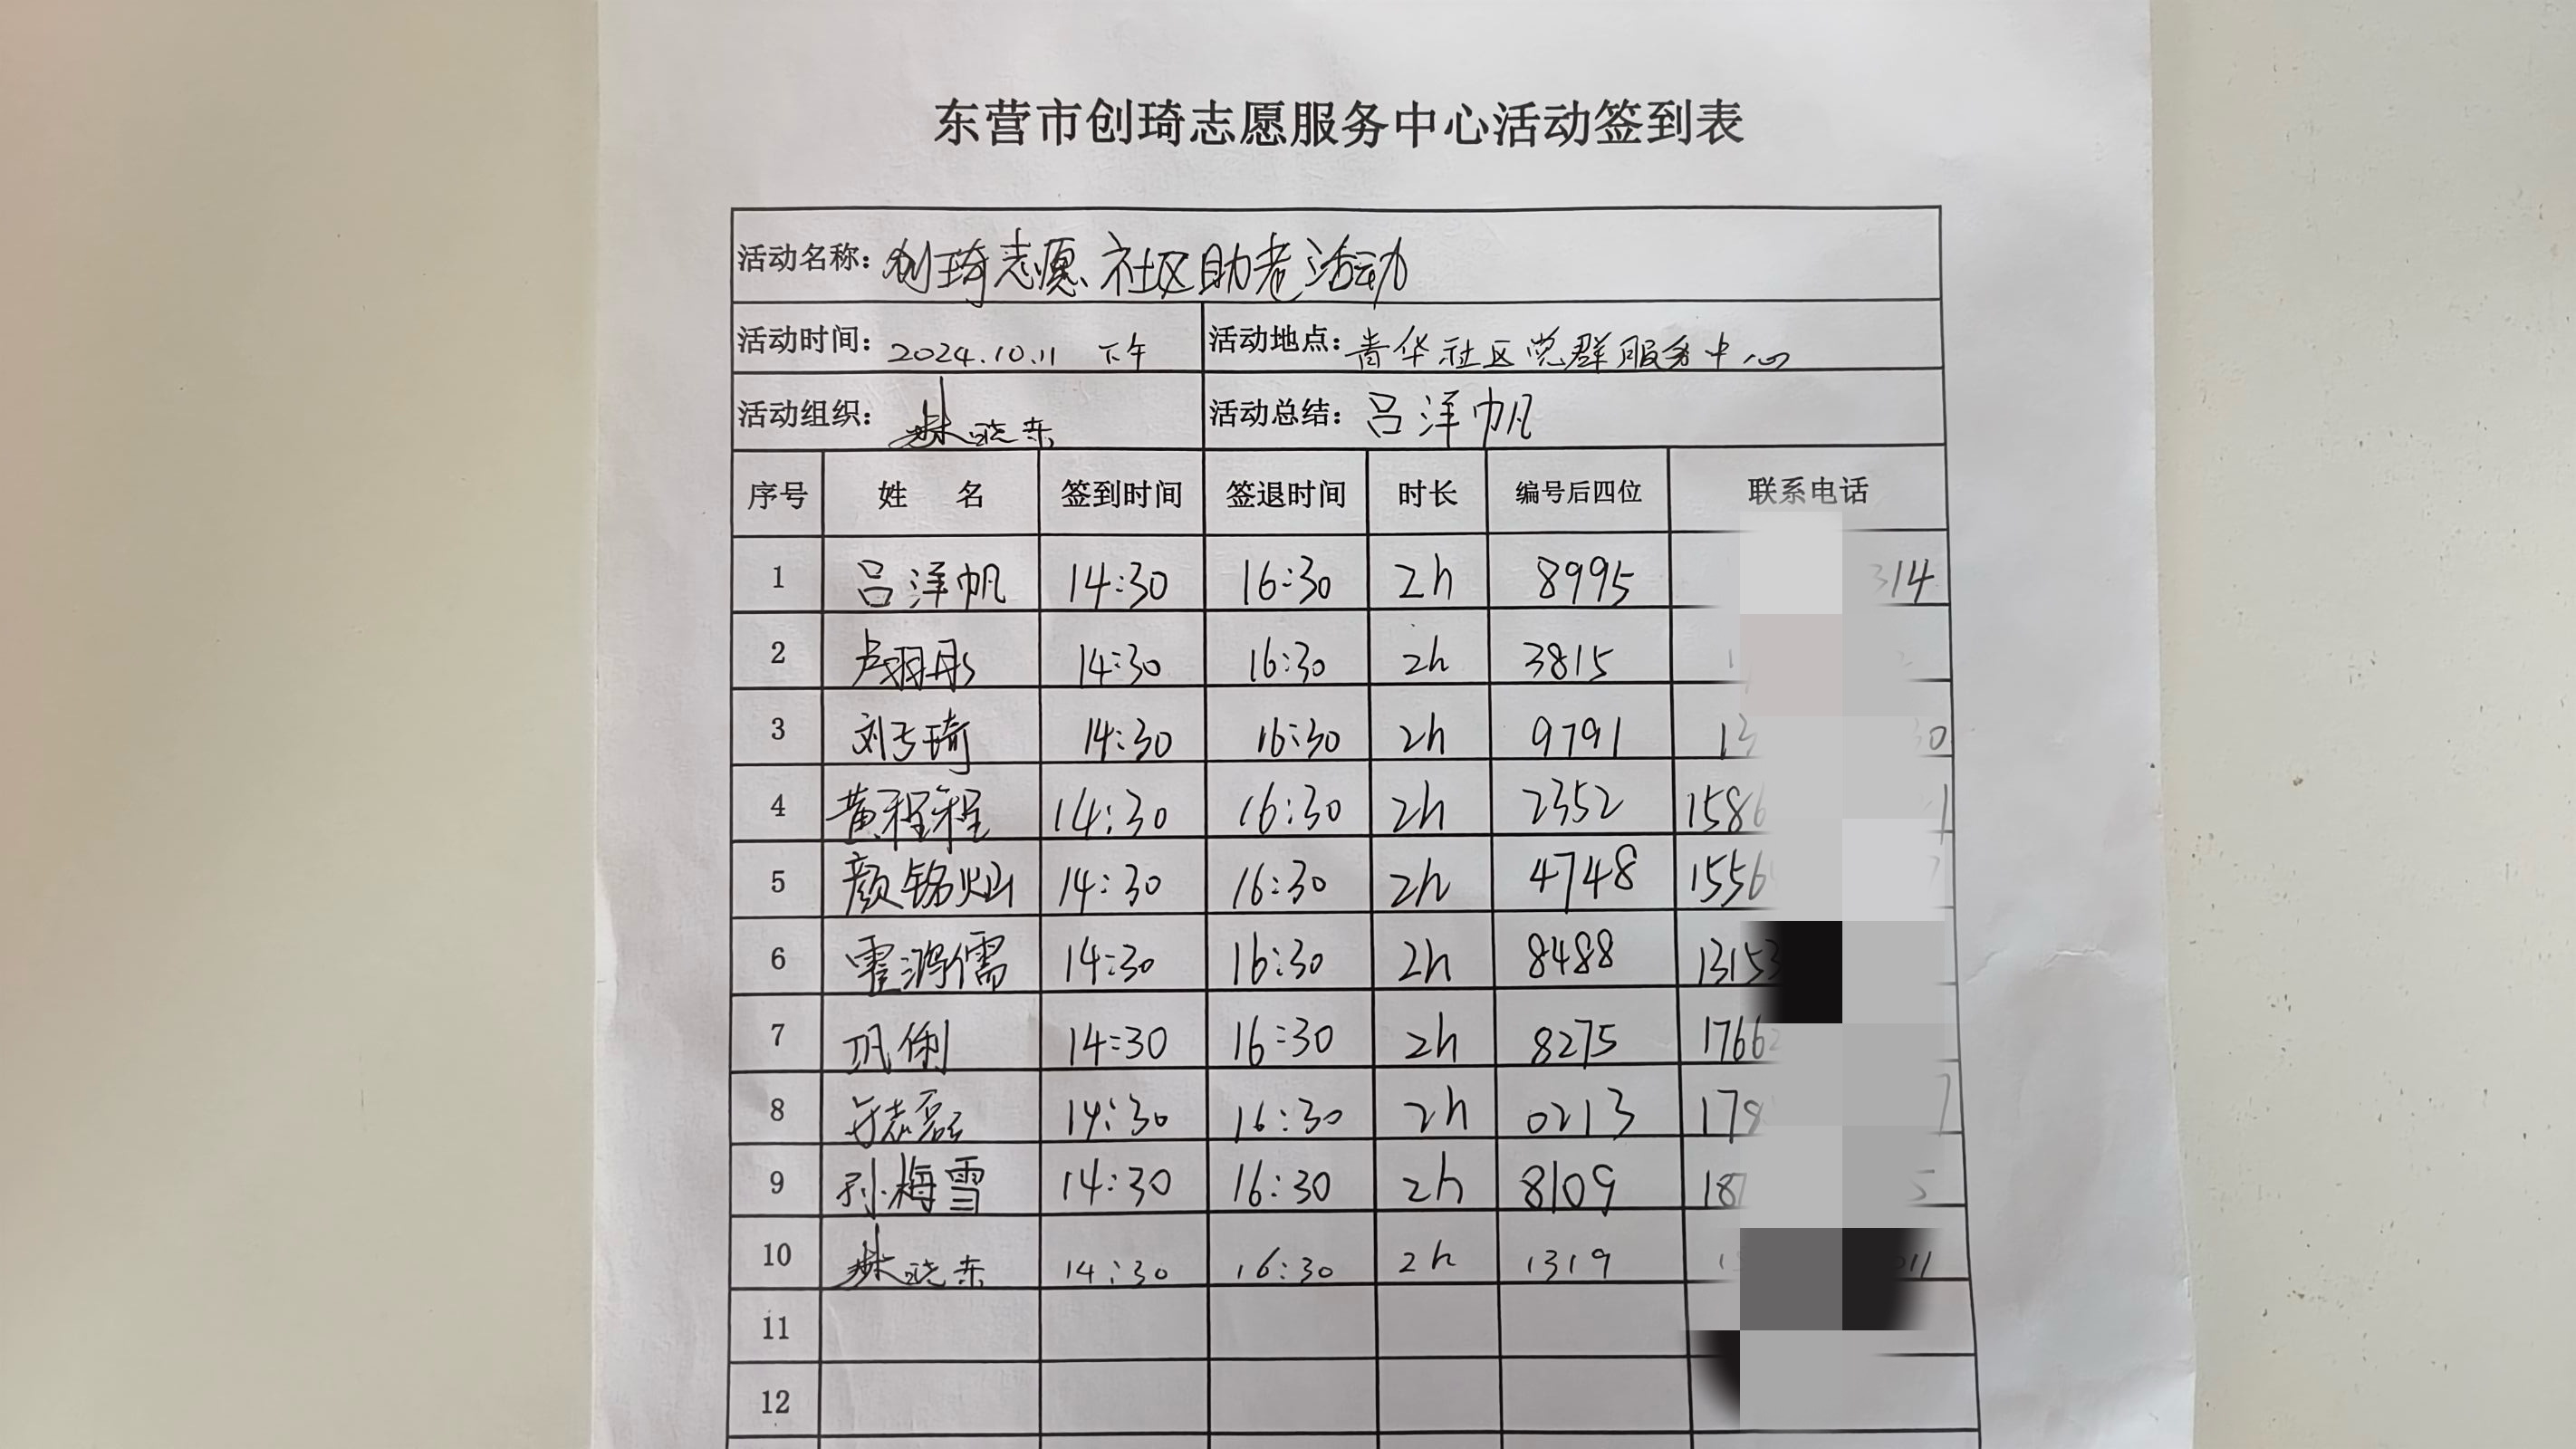 东营市创琦志愿服务中心活动签到表
活动名称：创琦志愿社区助老活动
活动时间：2024.10.11 下午 活动地点：青华社区党群服务中心
活动组织：林晓东 活动总结：吕洋帆
序号 姓 名 签到时间 签退时间 时长 编号后四位 联系电话
1 吕洋帆 14:30 16:30 2h 8995 314
2 卢翙彤 14:30 16:30 2h 3815
3 刘亏琦 14:30 16:30 2h 9791 13 30
4 黄程程 14:30 16:30 2h 2352 1586 1
5 颜铭灿 14:30 16:30 2h 4748 1556
6 霍鸿儒 14:30 16:30 2h 8488 13153
7 巩俐 14:30 16:30 2h 8275 1766
8 志磊 14:30 16:30 2h 0213 178 7
9 孙梅雪 14:30 16:30 2h 8109 187 5
10 林晓东 14:30 16:30 2h 1319 011
11
12